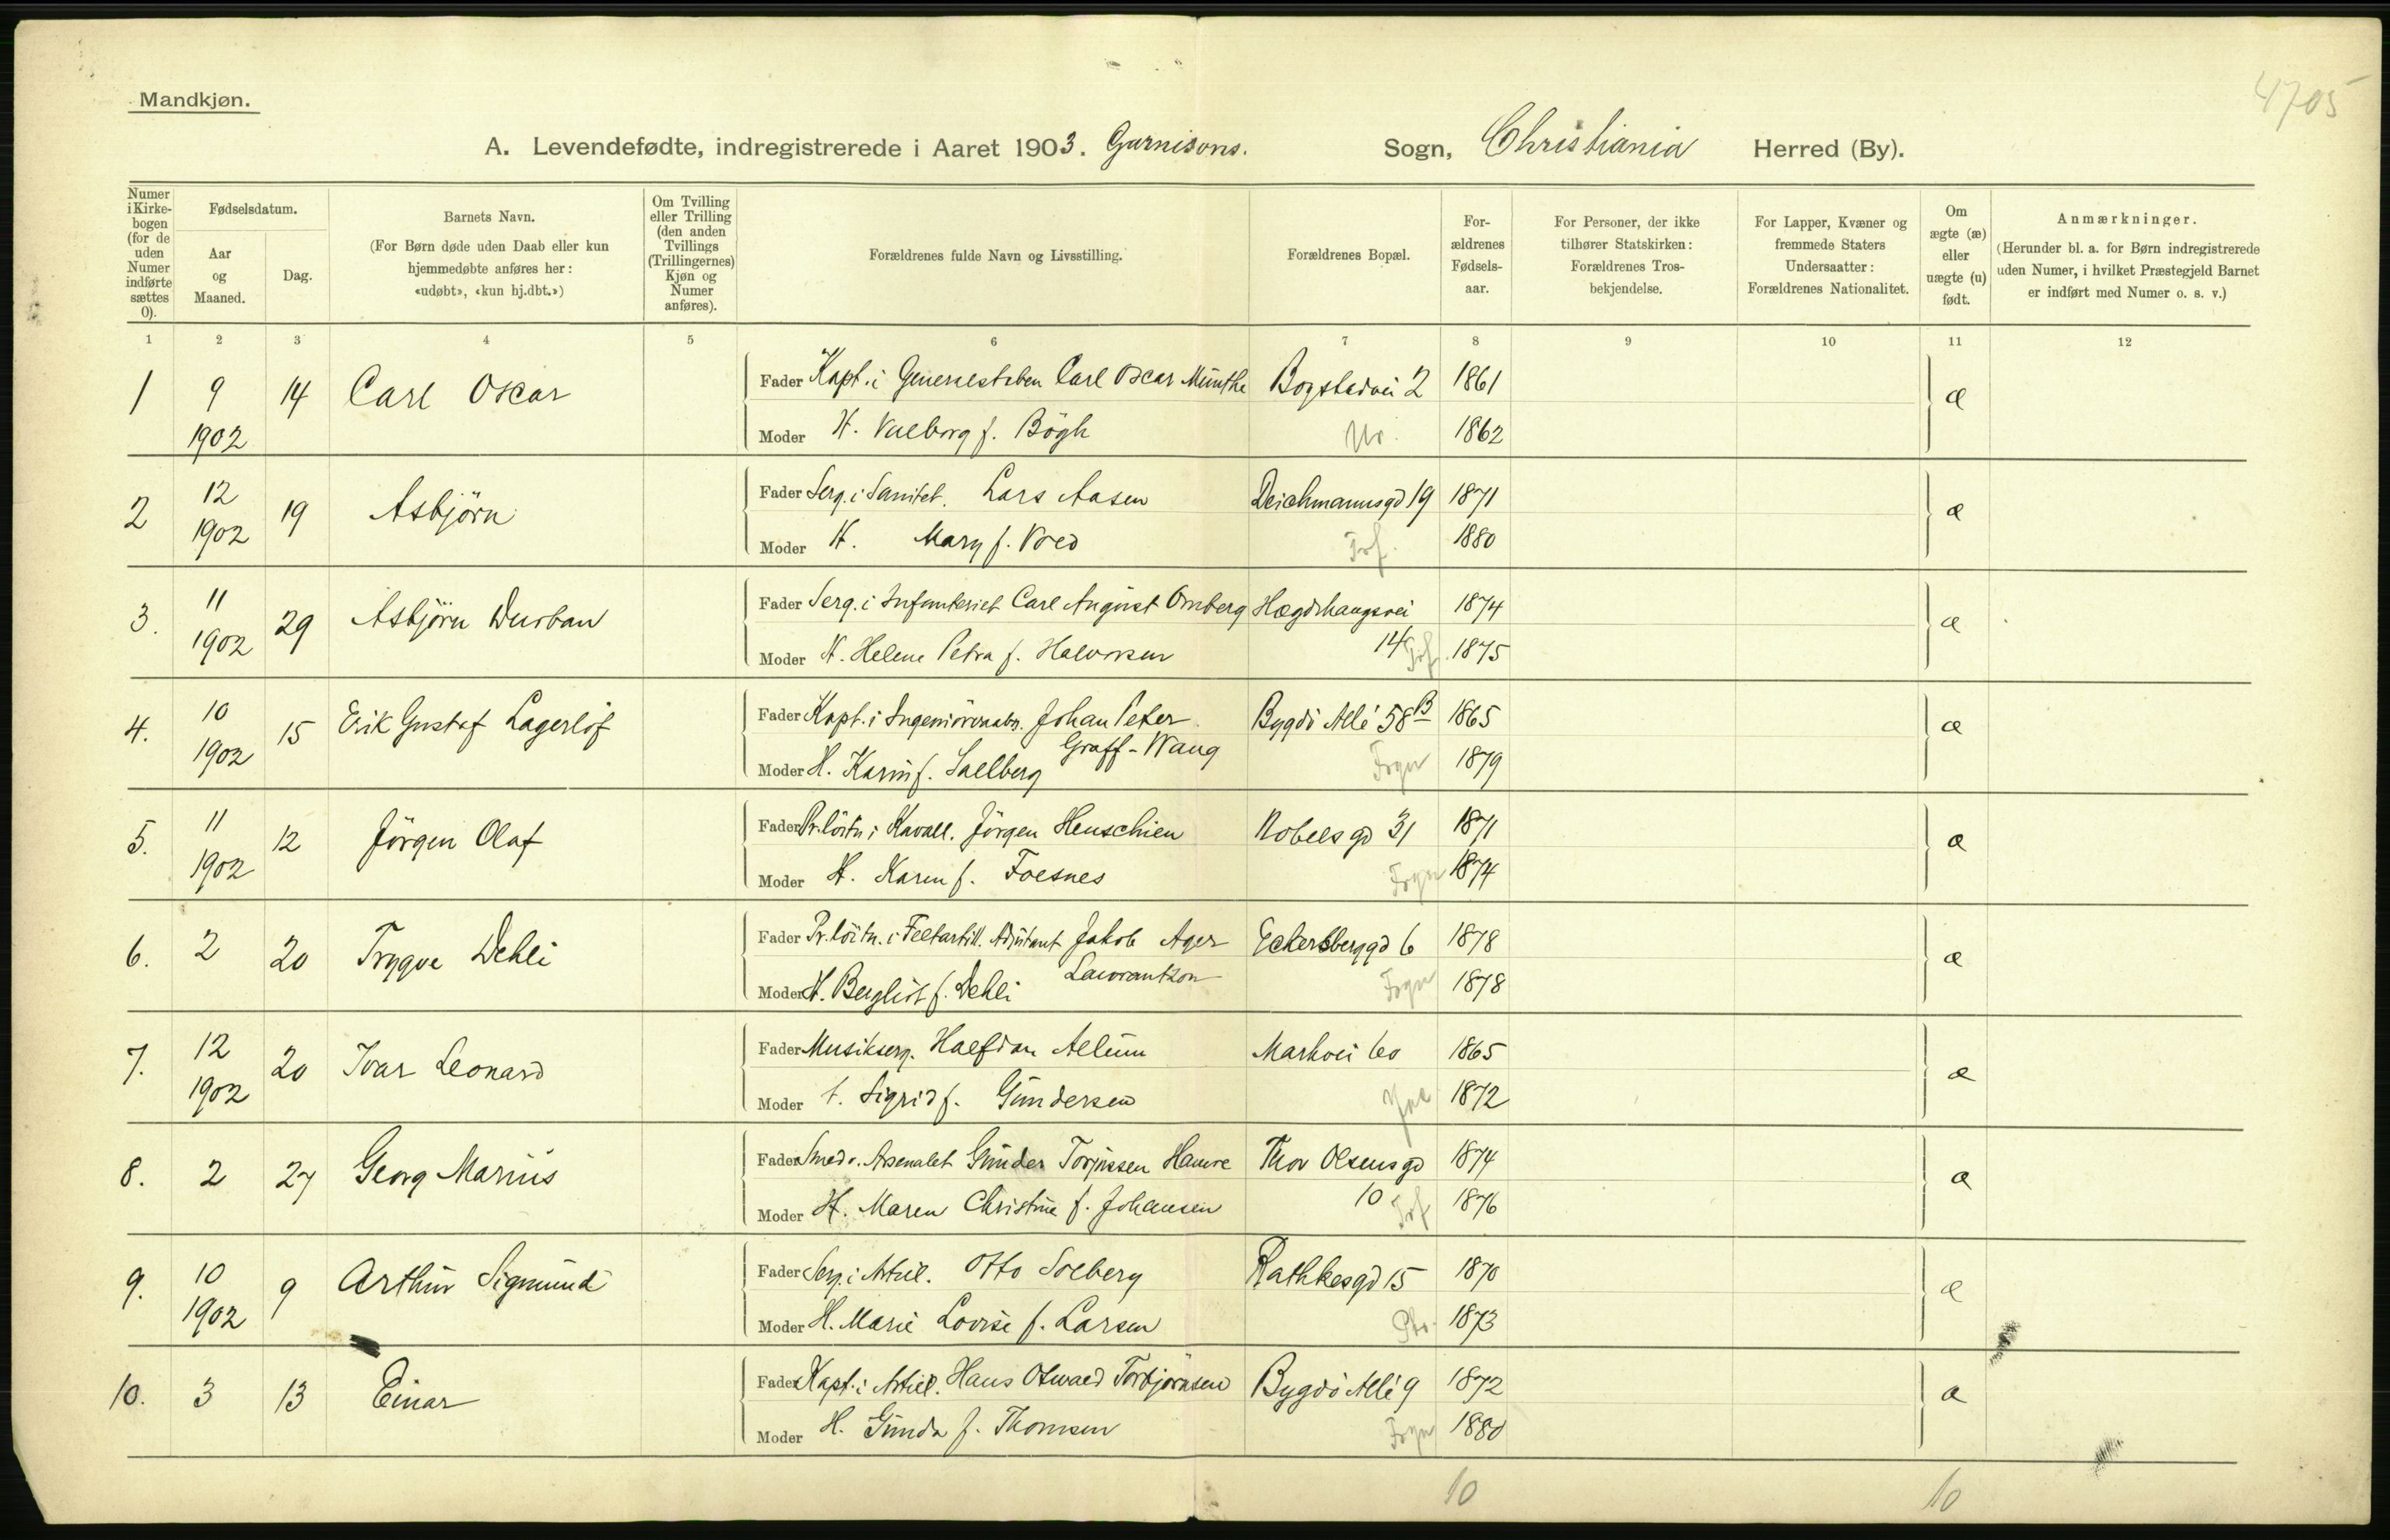 4705
Mandkjøn.
A. Levendefødte, indregistrerede i Aaret 1903. Garnisons. Sogn, Christiania Herred (By).
Numer i Kirkebogen (for de uden Numer indførte sættes 0).
Fødselsdatum.
Aar og Maaned.
Dag.
Barnets Navn.
(For Børn døde uden Daab eller kun hjemmedøbte anføres her: «udøbt», «kun hj.dbt.»)
Om Tvilling eller Trilling (den anden Tvillings (Trillingernes) Kjøn og Numer anføres).
Forældrenes fulde Navn og Livsstilling.
Forældrenes Bopæl.
Forældrenes Fødselsaar.
For Personer, der ikke tilhører Statskirken: Forældrenes Trosbekjendelse.
For Lapper, Kvæner og fremmede Staters Undersaatter: Forældrenes Nationalitet.
Om ægte (æ) eller uægte (u) født.
Anmærkninger.
(Herunder bl. a. for Børn indregistrerede uden Numer, i hvilket Præstegjeld Barnet er indført med Numer o. s. v.)
1 2 3 4 5 6 7 8 9 10 11 12
1 9 14 Carl Oscar Fader Kapt. i Generalstaben Carl Oscar Munthe Bogstadvei 2 1861 æ
1902 Moder H. Valborg f. Bögh Ur. 1862
2 12 19 Asbjörn Fader Serg. i Sanitet. Lars Aasen Deichmannsgd 19 1871 æ
1902 Moder H. Mary f. Vold Trf. 1880
3. 11 29 Asbjörn Durban Fader Serg. i Infanteriet Carl August Omberg Hægdehaugsvei 1874 æ
1902 Moder H. Helene Petra f. Halvorsen 14 Trf. 1875
4. 10 15 Erik Gustaf Lagerlöf Fader Kapt. i Ingeniörvaabn. Johan Peter Bygdö Allé 58 B 1865 æ
Graff-Wang
1902 Moder H. Karin f. Sallberg Frgn 1879
5. 11 12 Jörgen Olaf Fader Pr.löitn i Kavall. Jörgen Henschien Nobelsgd 31 1871 æ
1902 Moder H. Karen f. Foesnes Frgn 1874
6. 2 20 Trygve Dehli Fader Pr.löitn. i Feltartill. Adjutant Jakob Ager Eckersberggd 6 1878 æ
Laurantzon
Moder H. Bergliot f. Dehli Frgn 1878
7. 12 20 Ivar Leonard Fader Musikserg. Halfdan Allum Markvei 60 1865 æ
1902 Moder H. Sigrid f. Gundersen Jac 1872
8. 2 27 Georg Marius Fader Smed v. Arsenalet Gunder Torjussen Hamre Thov Olsensgd 1874 æ
Moder H. Maren Christine f. Johansen 10 Trf 1876
9. 10 9 Arthur Sigmund Fader Serg. i Artil. Otto Solberg Rathkesgd 15 1870 æ
1902 Moder H. Marie Lovise f. Larsen 1873
10. 3 13 Einar Fader Kapt. i Artill. Hans Otwald Torbjörnsen Bygdö Allé 9 1872 æ
Moder H. Gunda f. Thomsen Frgn 1880
10 10